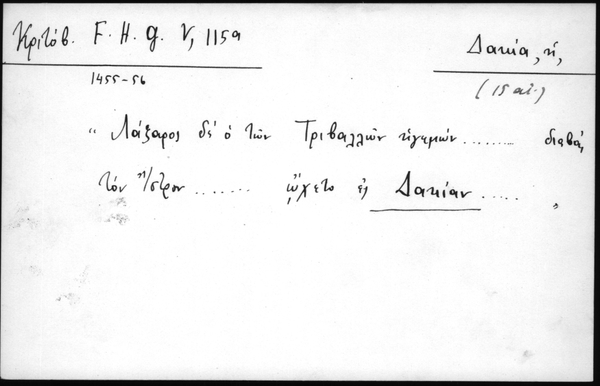 Κριτόβ. F. H. G. V, 115α
Δακία, ἡ,
1455-56
(15 αἰ.)
"Λάζαρος δὲ ὁ τῶν Τριβαλλῶν ἡγεμών ......... διαβάς
τὸν Ἴστρον ....... ᾤχετο ἐς Δακίαν ..... "